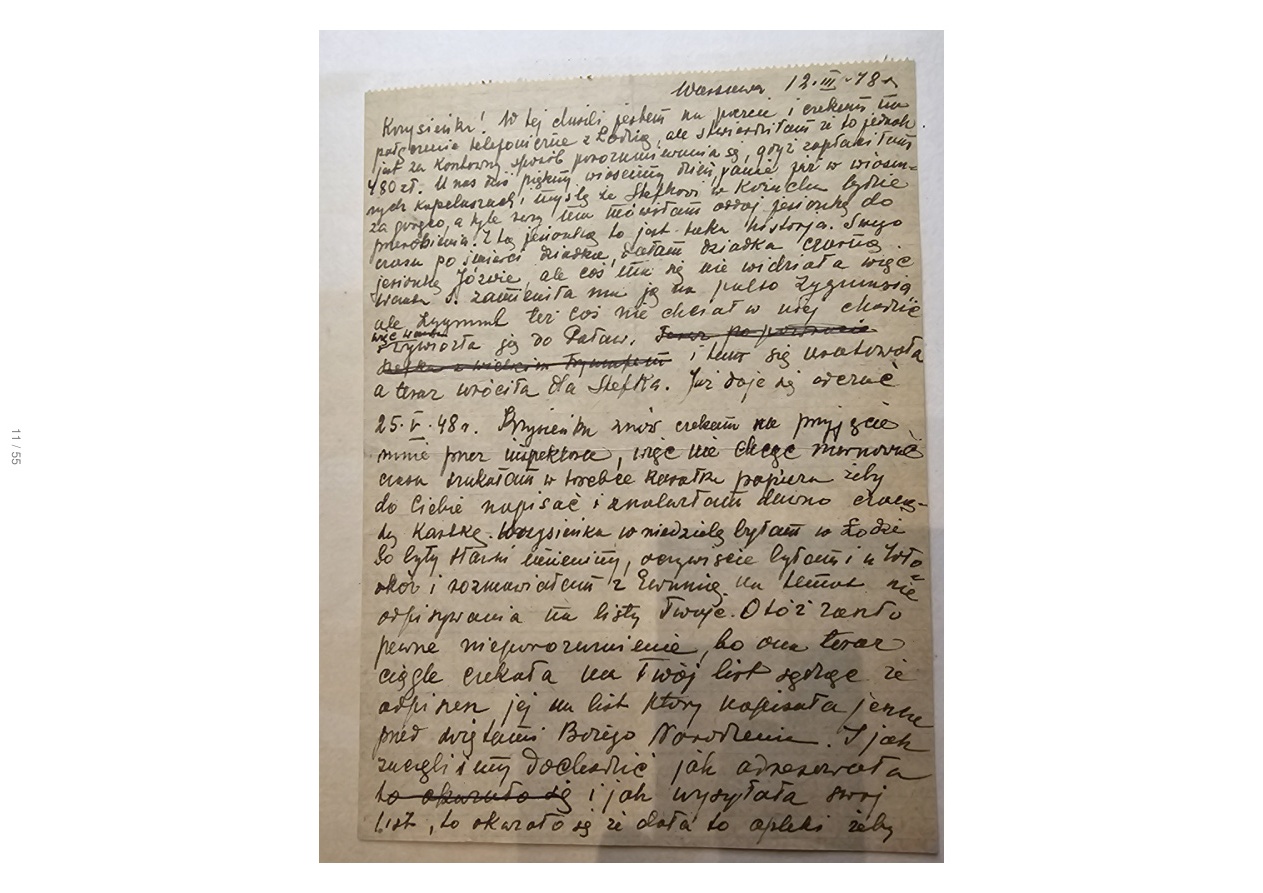 Warszawa 12.III.48 r.
Krysieńko! W tej chwili jestem na poczcie i czekam na
połączenie telefoniczne z Łodzią, ale stwierdziłam że to jednak
jest za kosztowny sposób porozumiewania się, gdyż zapłaciłam
480 zł. U nas dziś piękny wiosenny dzień, panie już w wiosen-
nych kapeluszach i myślę że Stefkowi w Kożuchu będzie
za gorąco, a tyle razy mu mówiłam oddaj jesionkę do
przerobienia. Z tą jesionką to jest taka historja. Swego
czasu po śmierci dziadka, dałam dziadka czarną
jesionkę Józwie, ale coś mu się nie widziała więc
Wanda S. zamieniła mu ją na palto Zygmusia
ale Zygmunt też coś nie chciał w niej chodzić
więc Wanda
wywiozła ją do Puław. Teraz po powrocie
Stefka z wielkim tryumfem i tam się uratowała
a teraz wróciła dla Stefka. Już daje się odczuć
25.V.48 r. Krysieńko znów czekam na przyjęcie
mnie przez inspektora, więc nie chcąc marnować
czasu szukałam w torebce kawałka papieru żeby
do Ciebie napisać i znalazłam dawno zaczę-
tą kartkę. Krysieńko w niedzielę byłam w Łodzi
bo były Stasi imieniny, oczywiście byłam i u Woło-
okór i rozmawiałam z Ewunią na temat nie
odpisywania na listy Twoje. Otóż zaszło
pewne nieporozumienie, bo ona teraz
ciągle czekała na Twój list sądząc że
odpiszesz jej na list który napisała jeszcze
przed świętami Bożego Narodzenia. I jak
zaczęliśmy dochodzić jak adresowała
to okazało się i jak wysyłała swój
list, to okazało się że dała to opleki żeby
11 / 55